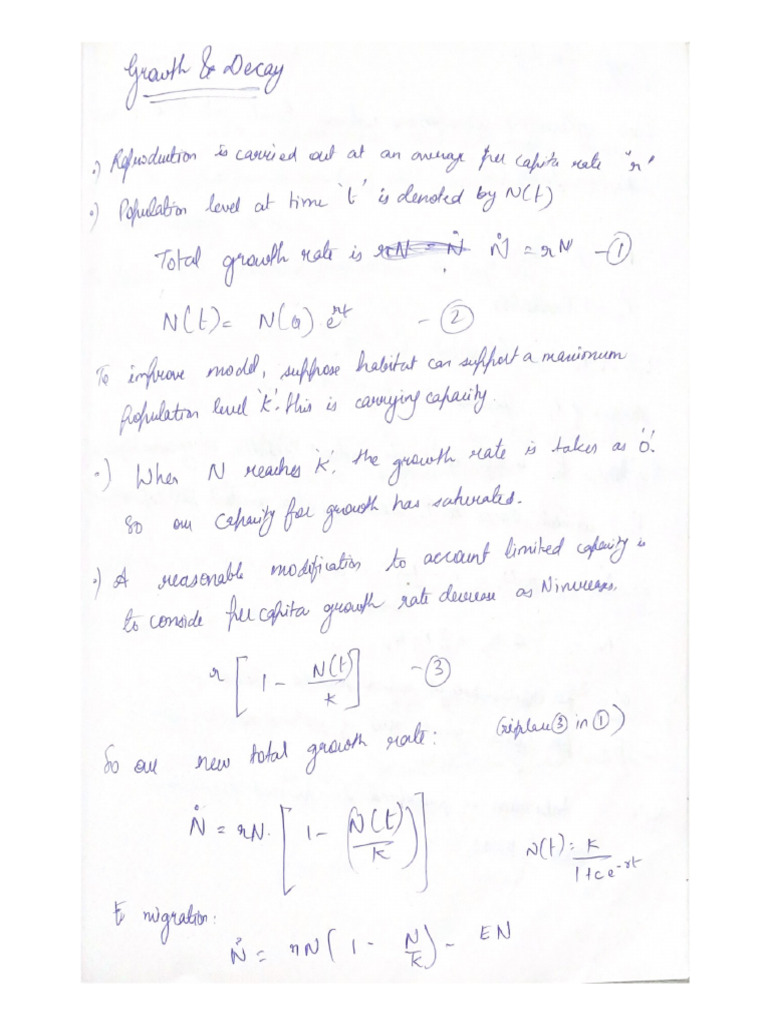 Growth & Decay
•) Reproduction is carried out at an average per capita rate "r"
•) Population level at time 't' is denoted by N(t)
Total growth rate is Ṅ = rN —①
N(t) = N(0) e^rt —②
To improve model, suppose habitat can support a maximum
population level 'k'. this is carrying capacity.
•) When N reaches 'k', the growth rate is taken as '0'.
So our capacity for growth has saturated.
•) A reasonable modification to account limited capacity is
to conside per capita growth rate decrease as N increases.
r [1 - N(t)/k] —③
So our new total growth rate: (replace ③ in ①)
Ṅ = rN. [1 - (N(t)/k)]
N(t) = k/(1+ce^-rt)
migration:
Ṅ = rN(1 - N/k) - EN